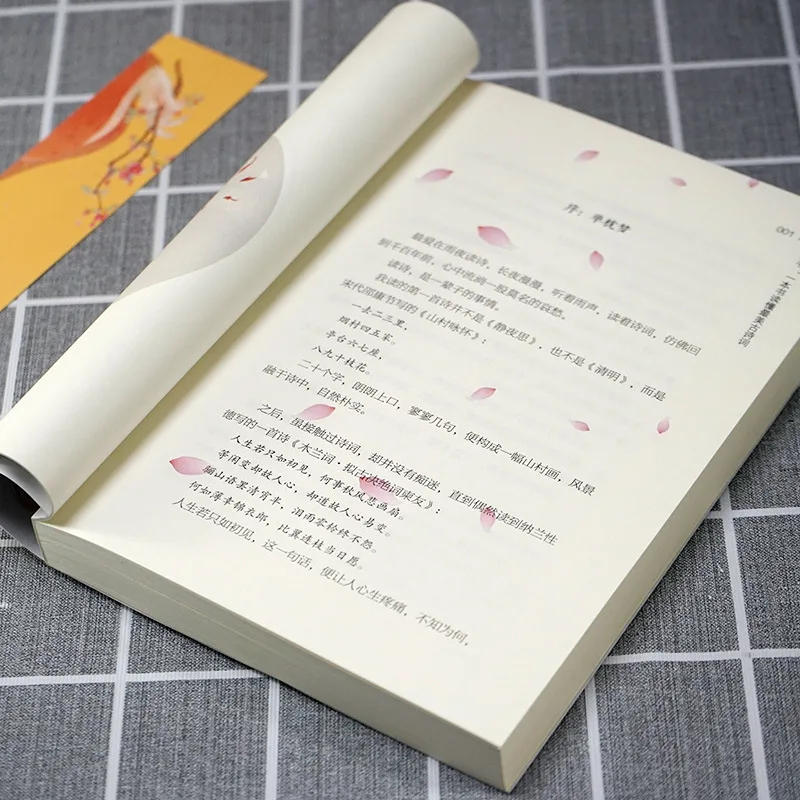 001
一本书读懂最美古诗词
序：单枕梦
最爱在雨夜读诗，长夜漫漫，听着雨声，读着诗词，仿佛回
到千百年前，心中也油一股莫名的哀愁。
读诗，是一辈子的事情。
我读的第一首诗并不是《静夜思》，也不是《清明》，而是
宋代邵康节写的《山村咏怀》：
一去二三里，
烟村四五家。
亭台六七座，
八九十枝花。
二十个字，朗朗上口，寥寥几句，便构成一幅山村画，风景
融于诗中，自然朴实。
之后，虽接触过诗词，却并没有痴迷，直到偶然读到纳兰性
德写的一首诗《木兰词·拟古决绝词柬友》：
人生若只如初见，何事秋风悲画扇。
等闲变却故人心，却道故人心易变。
骊山语罢清宵半，泪雨零铃终不怨。
何如薄幸锦衣郎，比翼连枝当日愿。
人生若只如初见，这一句话，便让人心生疼痛，不知为何，